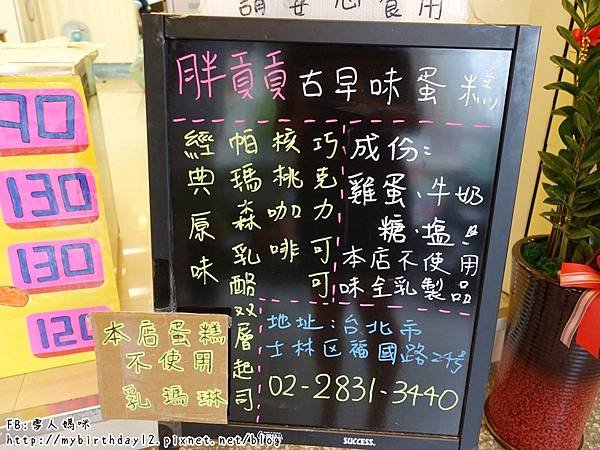 請安心食用
胖貢貢古早味蛋糕
經典原味
帕瑪森乳酪双層起司
核桃咖啡
巧克力可可
成份:
雞蛋、牛奶
糖、塩
本店不使用
味全乳製品
地址:台北市
士林区福國路24号
02-2831-3440
本店蛋糕
不使用
乳瑪琳
90
130
130
120
SUCCESS.
FB:壽人媽咪
http://mybirthday12.pixnet.net/blog